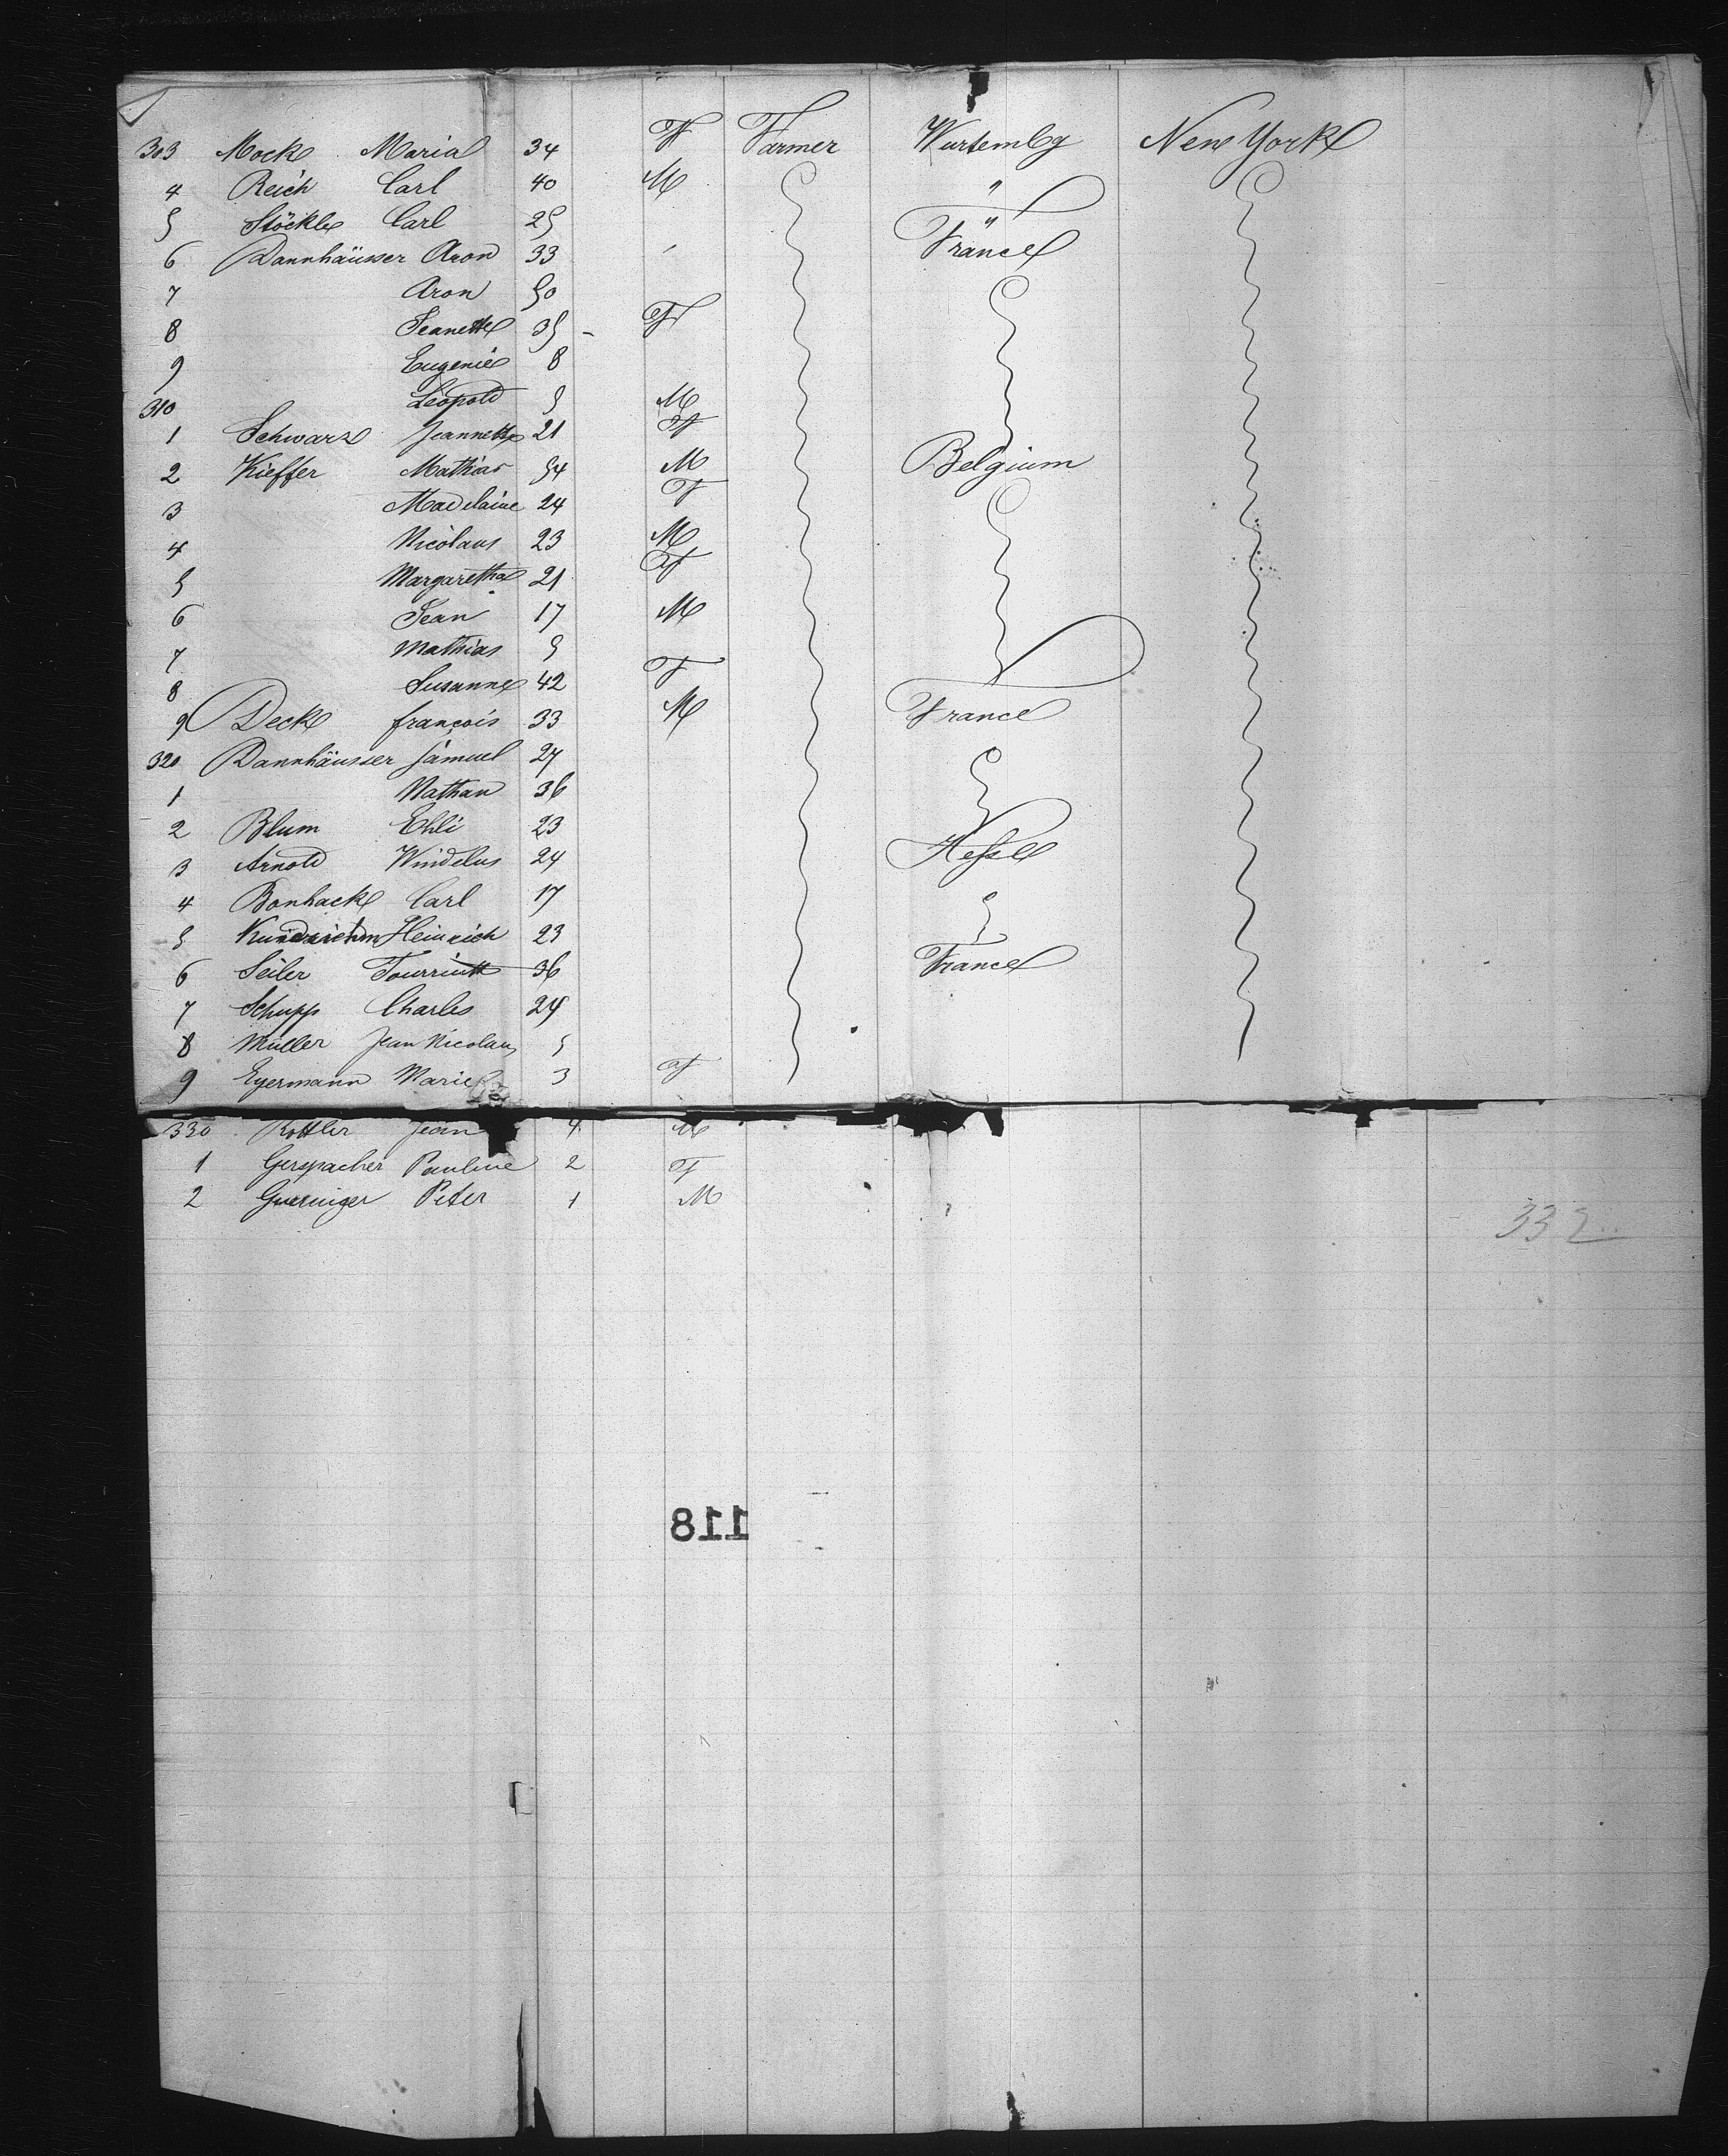 303 Mock Maria 34 F Farmer Wurtembg New York
4 Reich Carl 40 M "
5 Stöckle Carl 25 "
6 Dannhäusser Aron 33 France
7 Aron 50
8 Jeanette 35 - F
9 Eugenie 8
310 Leopold 5 M
1 Schwarz Jeannette 21 F
2 Kieffer Mathias 54 M Belgium
3 Madelaine 24 F
4 Nicolaus 23 M
5 Margaretha 21 F
6 Jean 17 M
7 Mathias 5
8 Susanne 42 F
9 Deck françois 33 M France
320 Dannhäusser Samuel 27
1 Nathan 36
2 Blum Ehli 23
3 Arnold Windelus 24 Hesse
4 Bonhack Carl 17
5 Heinrich 23
6 Seiler 36 France
7 Schupp Charles 24
8 Müller Jean Nicolaus 5
9 Eyermann Marie 3 F
330 Rottler Jean 4 M
1 Gerspacher Pauline 2 F
2 Guerringer Peter 1 M
332
118